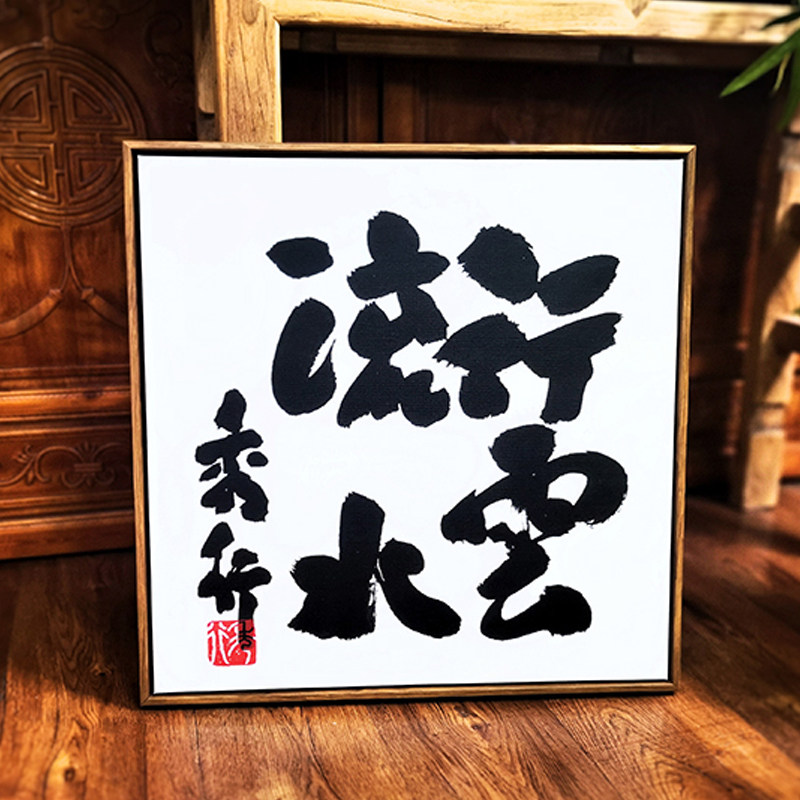 行雲
流水
秀行